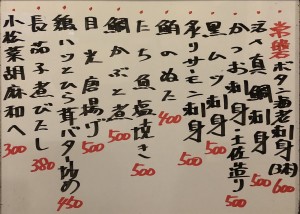 常磐ボタン海老刺身(3本)600
活〆真鯛刺身 500
かつお刺身・土佐造り 500
黒ムツ刺身 500
炙りサーモン刺身 500
鮪のぬた 400
たち魚塩焼き 500
鯛かぶと煮 500
目光唐揚げ 500
鶏ハツとひら茸バター炒め 450
長茄子煮びたし 380
小松菜胡麻和へ 300